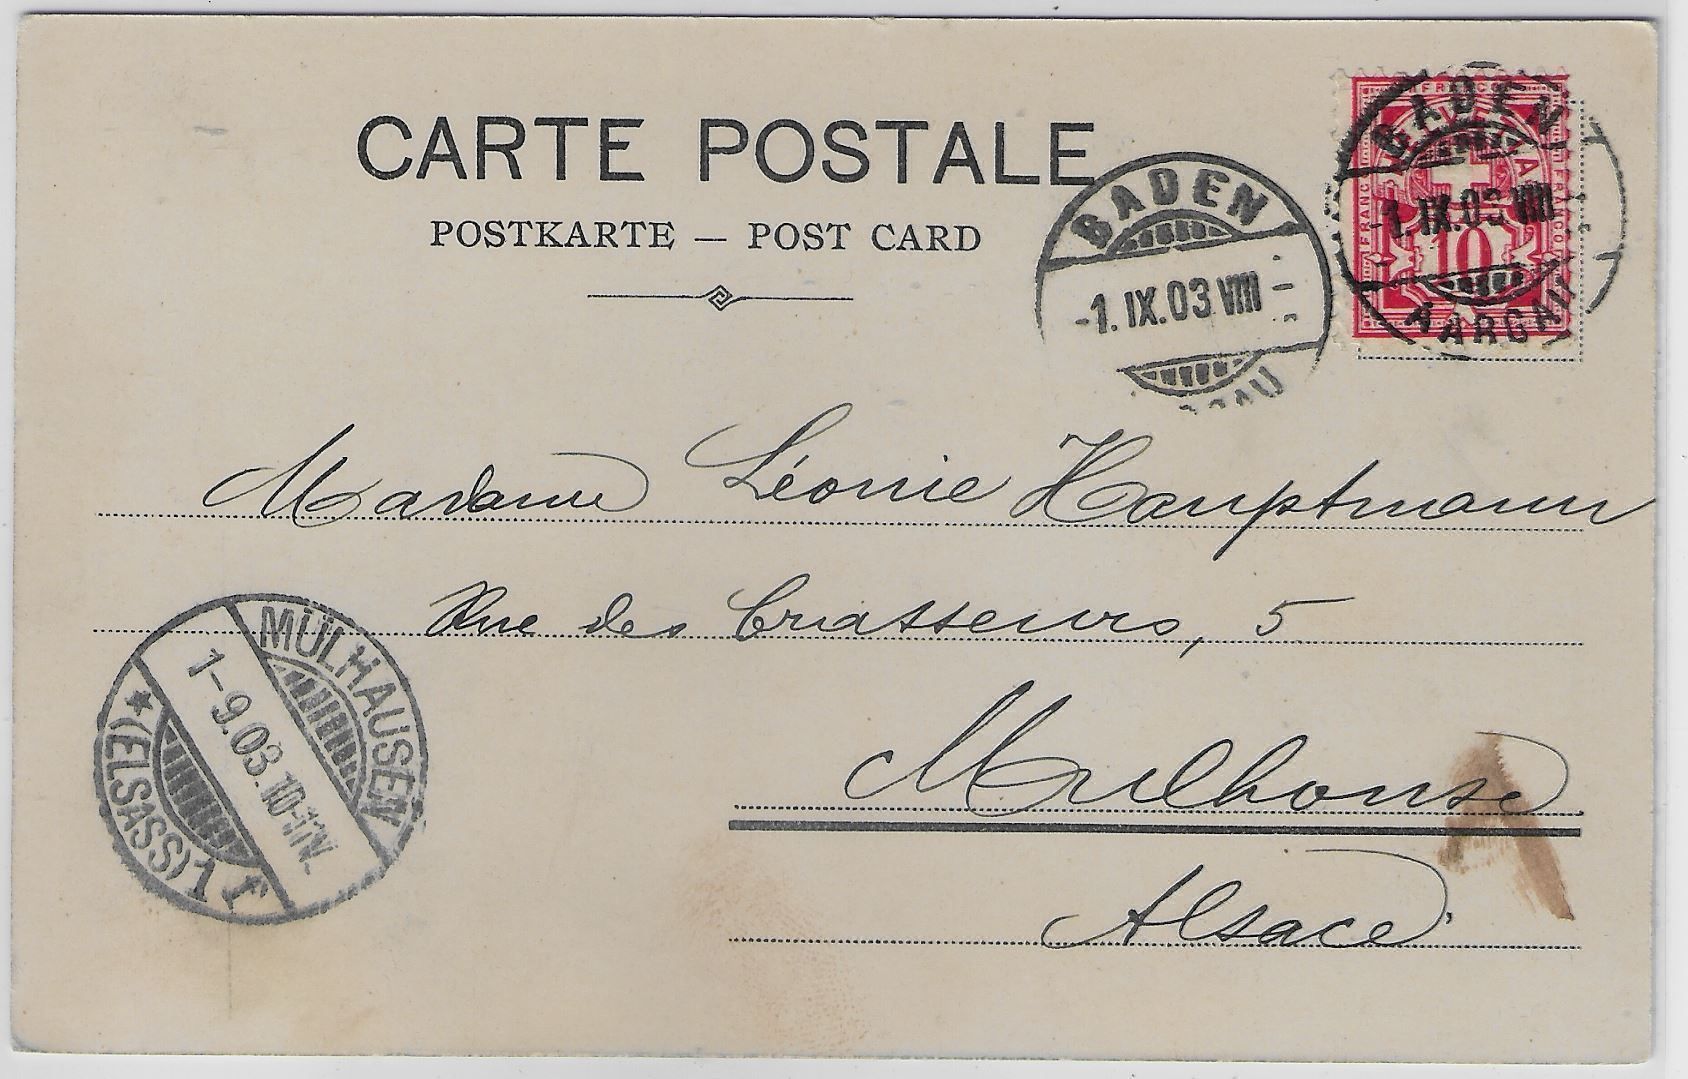 CARTE POSTALE
POSTKARTE — POST CARD
BADEN
-1. IX. 03 VIII -
FRANCO
FRANCO
FRANCO
10
BADEN
-1. IX. 03 VIII
AARGAU
Madame Léonie Hauptmann
Rue des brasseurs, 5
Mulhouse
Alsace
MÜLHAUSEN
1-9.03. 10-11N.
* (ELSASS) 1 f